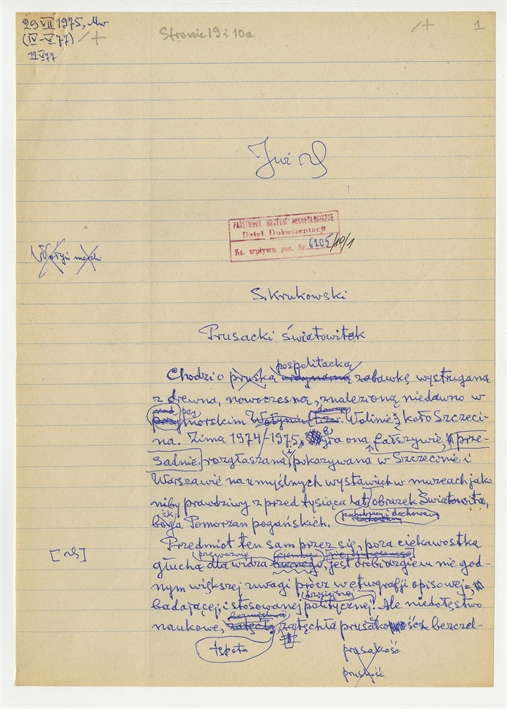 29 VII 1975, Mw
(IV-V 77)
Stronic 19 i 10a
1
PAŃSTWOWE MUZEUM ARCHEOLOGICZNE
Dział Dokumentacji
Ks. wpływu poz. Nr. 6205/10/1
S. Krukowski
Prusacki światowitek
pospolitacką
Chodzi o pruską zabawkę wystruganą
z drewna, nowoczesną, znalezioną niedawno w
morskim Wolinie koło Szczeci-
na. Zimą 1974-1975, ona fałszywie, prze-
sadnie rozgłaszana i pokazywana w Szczecinie i
Warszawie na umyślnych wystawach w muzeach jako
niby prawdziwy z przed tysiąca lat obrazek Światowita,
boga Pomorzan pogańskich.
Przedmiot ten sam przez się, poza ciekawostką
głuchą dla widza, jest drobiazgiem nie god-
nym większej uwagi prócz w etnografji opisowej,
badającej i stosowanej politycznej. Ale niedołęstwo
naukowe, zatęchła bezczel-
tępota
prusakość